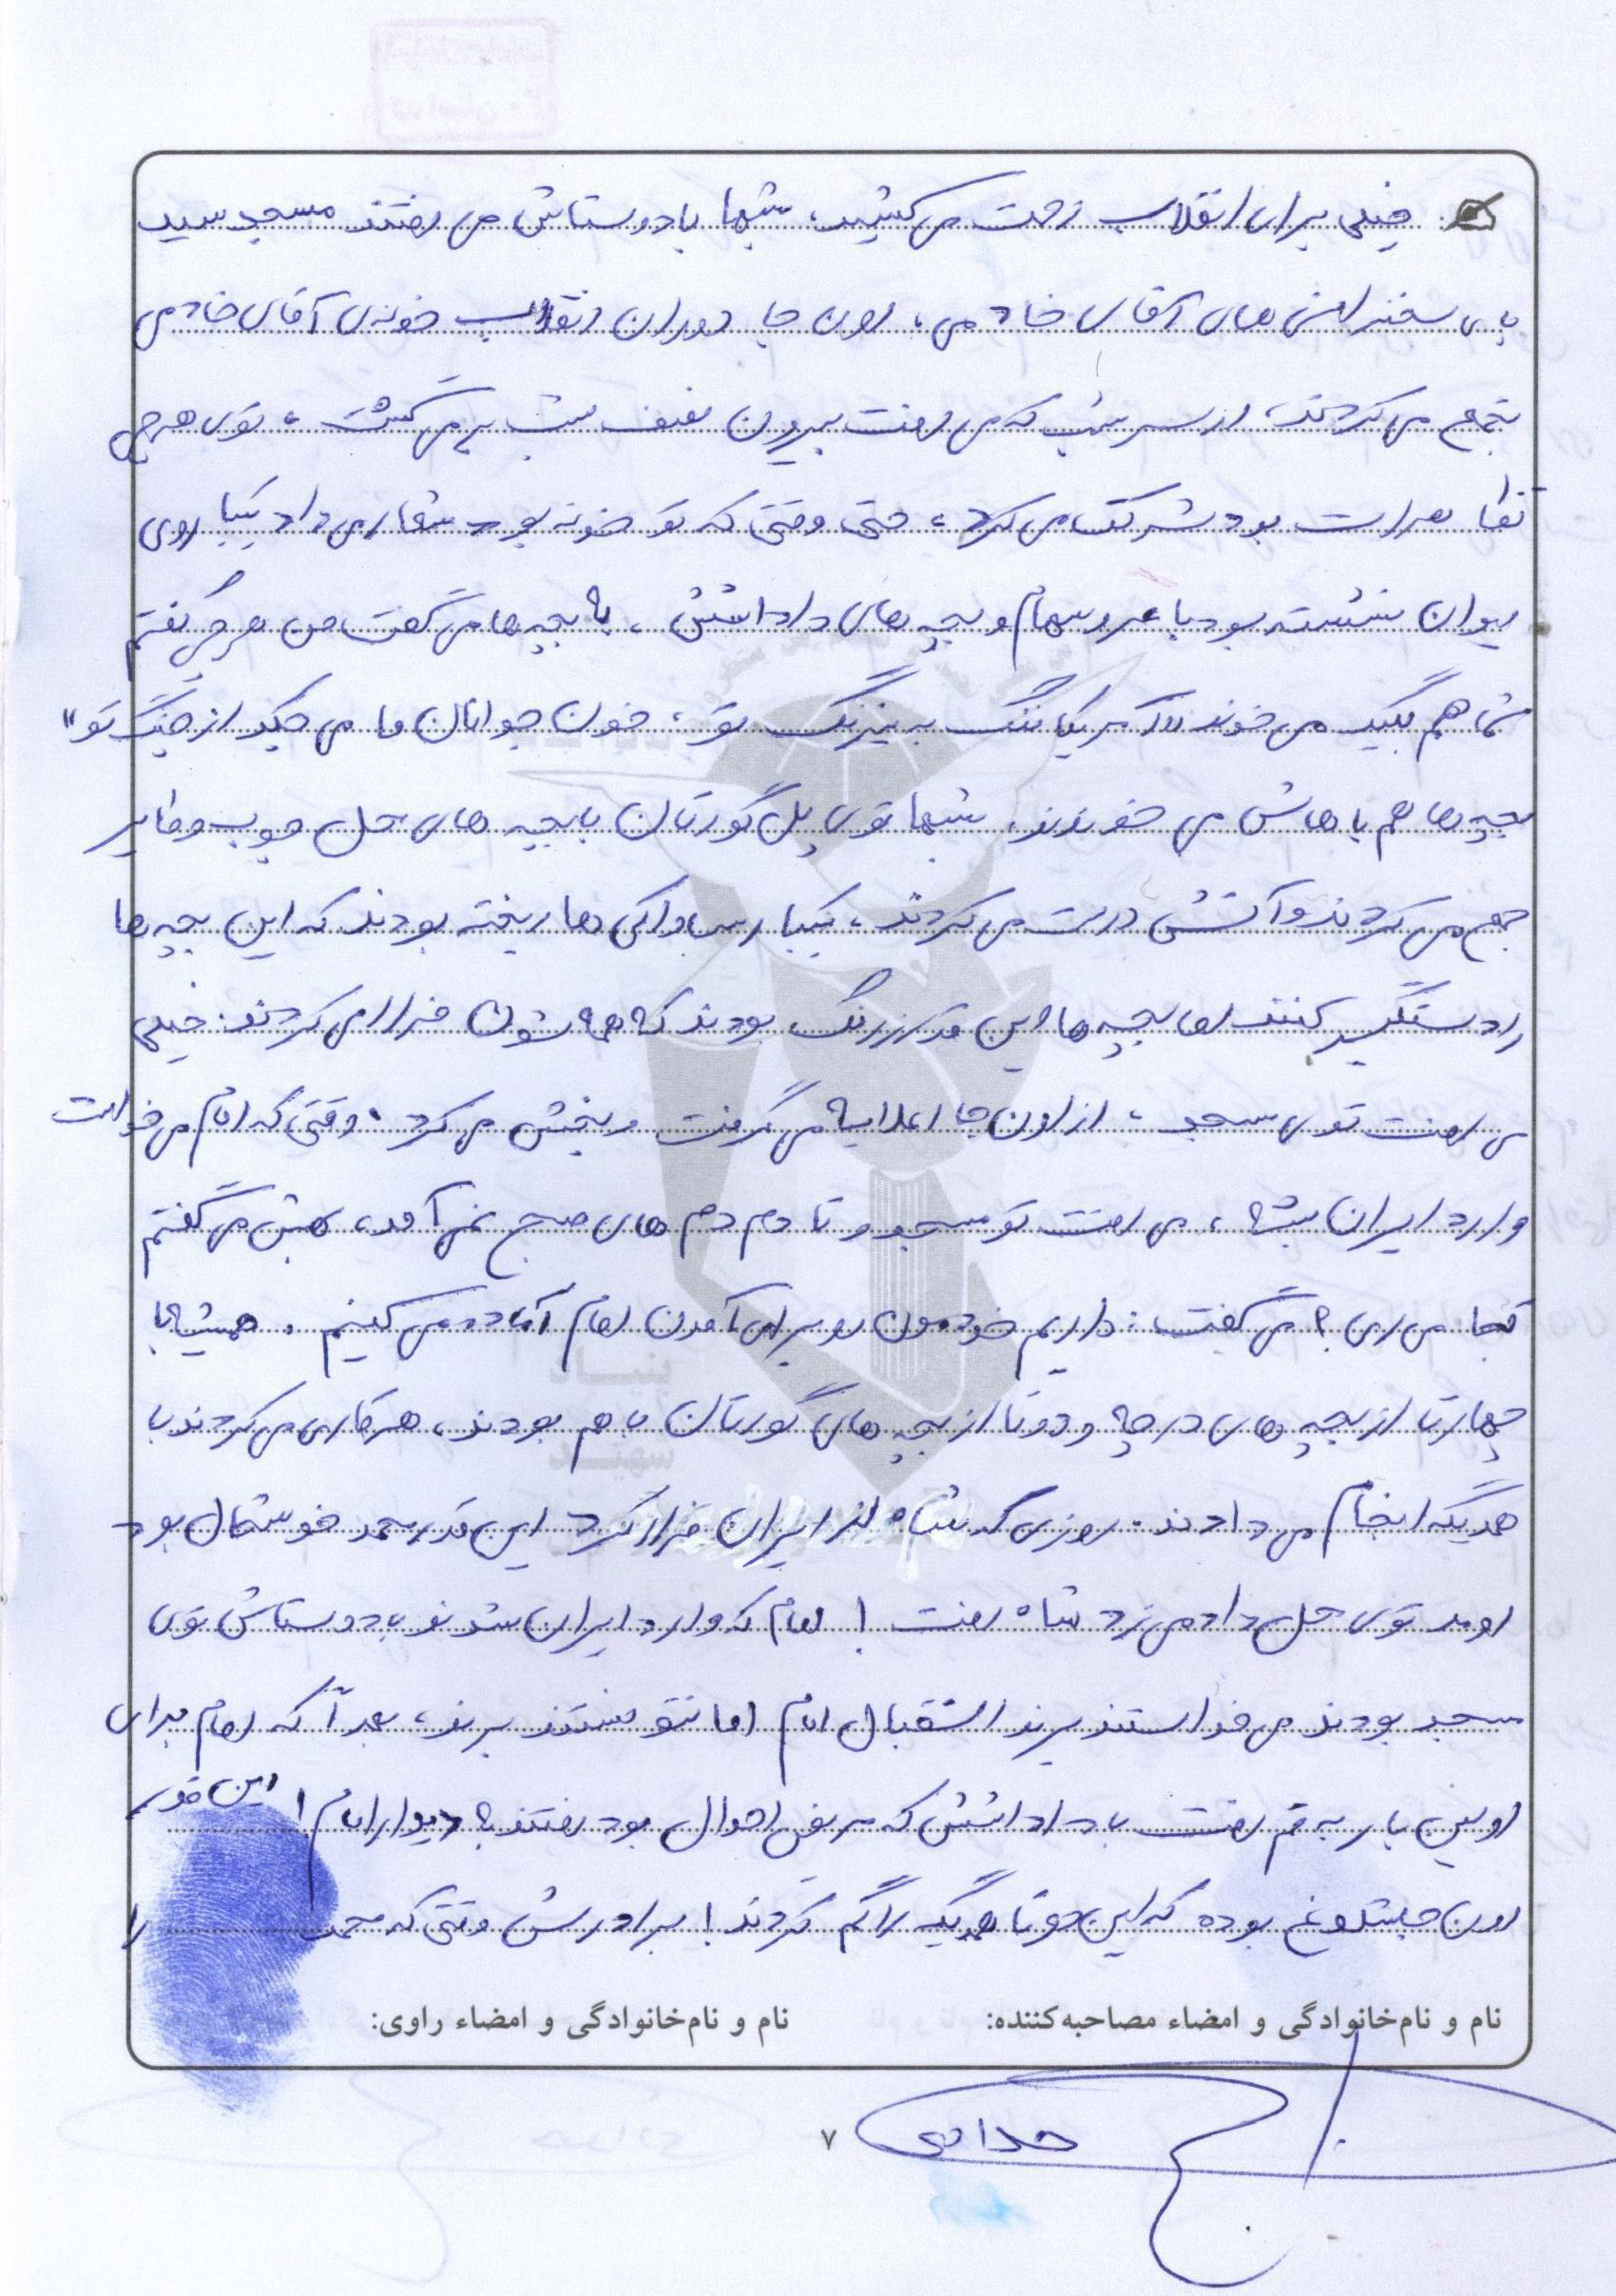 خیلی برای انقلاب زحمت می کشید، شبها با دوستاش می رفتند مسجد سید
پای سخنرانی های آقای خادمی، اون جا دوران انقلاب خونه ی آقای خادمی
تجمع می کردند، از سر شب که می رفت بیرون نصف شب برمی گشت، توی هرچی
تظاهرات بود شرکت می کرد، حتی وقتی که تو خونه بود شعار می داد یکبار روی
ایوان نشسته بود با عروسهام و بچه های داداشش، به بچه ها می گفت من هرچی گفتم
شما هم بگید می خوند "آمریکا ننگ به نیرنگ تو، خون جوانان ما می چکد از چنگ تو"
بچه ها هم باهاش می خوندند، شبها توی پل گورتان با بچه های محل چوب و تایر
جمع می کردند و آتش درست می کردند، یکبار ساواکی ها ریخته بودند که این بچه ها
را دستگیر کنند اما بچه ها این قدر زرنگ بودند که همه شون فرار می کردند. خیلی
می رفت توی مسجد، از اون جا اعلامیه می گرفت و پخش می کرد. وقتی که امام می خواست
وارد ایران بشه، می رفت تو مسجد و تا دم دم های صبح نمی آمد، بهش می گفتم
کجا می ری؟ می گفت: داریم خودمون رو برای آمدن امام آماده می کنیم. همیشه با
چهارتا از بچه های درچه و دوتا از بچه های گورتان با هم بودند، هرکاری می کردند با
همدیگه انجام می دادند. روزی که شاه از ایران فرار کرد این قدر محمد خوشحال بود
اومد توی محل داد می زد شاه رفت! امام که وارد ایران شدند با دوستاش توی
مسجد بودند می خواستند برند استقبال امام اما نتونستند برند، بعداً که امام برای
اولین بار به قم رفت با داداشش که مریض احوال بود رفتند به دیدار امام! این قدر
اون جا شلوغ بوده که این دوتا همدیگه را گم کردند! برادرش وقتی که محمد را
نام و نام‌خانوادگی و امضاء مصاحبه‌کننده:
نام و نام‌خانوادگی و امضاء راوی:
۷